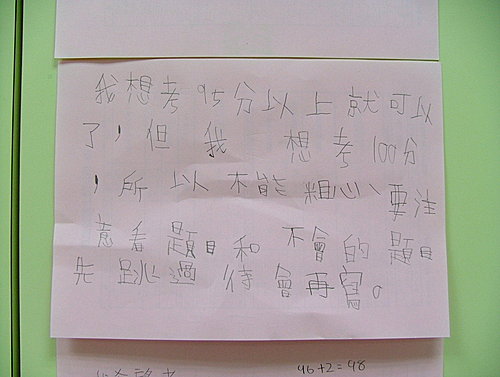 我想考95分以上就可以
了，但我想考100分
，所以不能粗心、要注
意看題目和不會的題目
先跳過待會再寫。
46+2=48